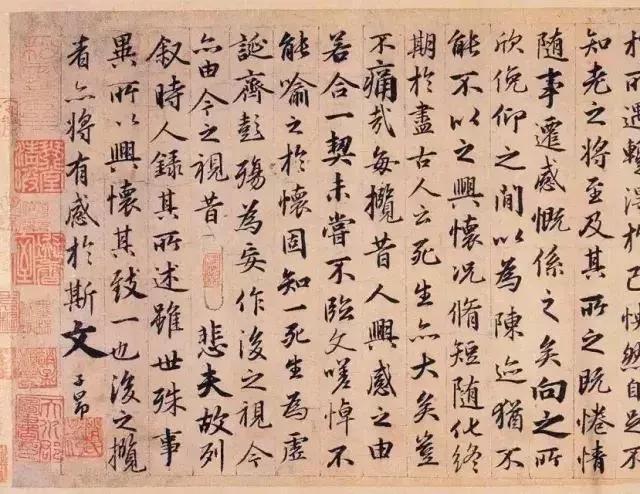 於所遇輒得於己怏然自足不
知老之將至及其所之既惓情
随事遷感慨係之矣向之所
欣俛仰之間以為陳迹猶不
能不以之興懷况脩短随化終
期於盡古人云死生亦大矣豈
不痛哉每攬昔人興感之由
若合一契未嘗不臨文嗟悼不
能喻之於懷固知一死生為虛
誕齊彭殤為妄作後之視今
亦由今之視昔 悲夫故列
叙時人録其所述雖世殊事
異所以興懷其致一也後之攬
者亦將有感於斯文 子昂